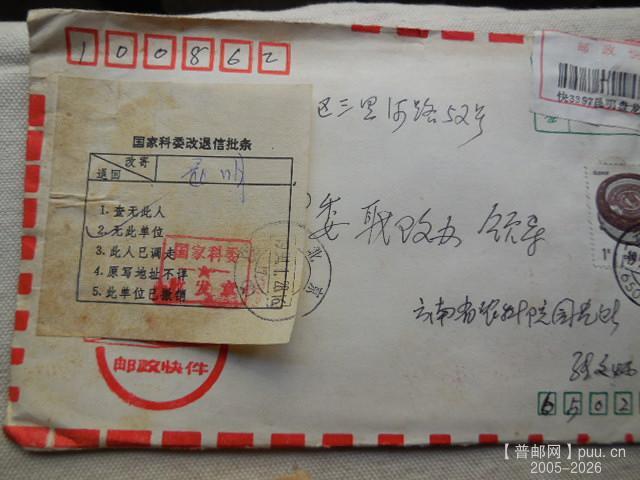 100862
邮政快
快3397昆明盘龙
区三里河路52号
国家科委改退信批条
改寄
退回
1. 查无此人
2. 无此单位
3. 此人已调走
4. 原写地址不详
5. 此单位已撤销
国家科委
收发章
委职改办 领导
云南省农科院园艺所
邮政快件
6502
【普邮网】puu.cn
2005-2026